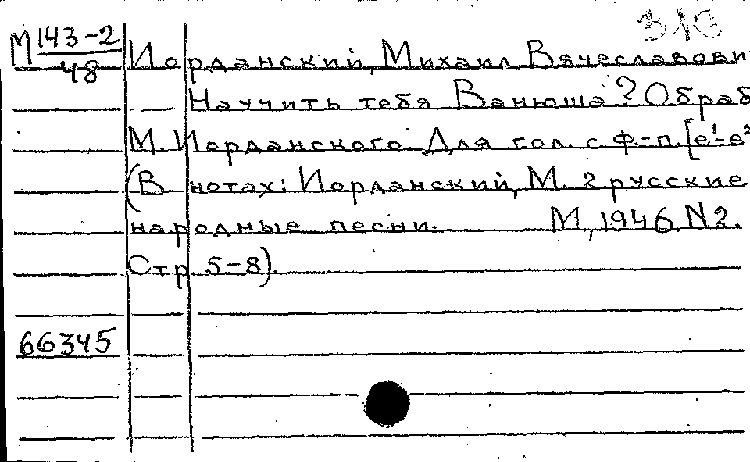 М 143-2
48
Иорданский, Михаил Вячеславови
Научить тебя Ванюша? Обраб
М. Иорданского. Для гол. с ф-п. [e¹-e²
(В нотах: Иорданский, М. 2 русские
народные песни. М, 1946. N2.
Стр. 5-8).
66345